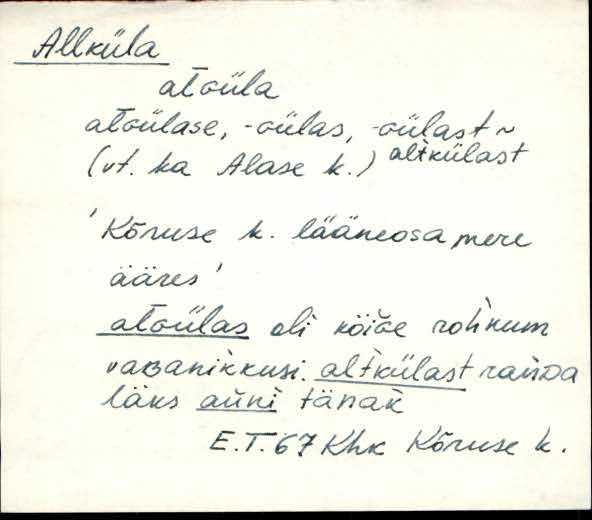 Allküla
alGüla
alGülase, -Gülas, -Gülast ~
(vt. ka Alase k.) altkülast
'Kõruse k. lääneosa mere
ääres'
alGülas oli kõiGe rohkum
vaBanikkusi. altkülast ranDa
läks auni tänaK
E.T. 67 Khk Kõruse k.